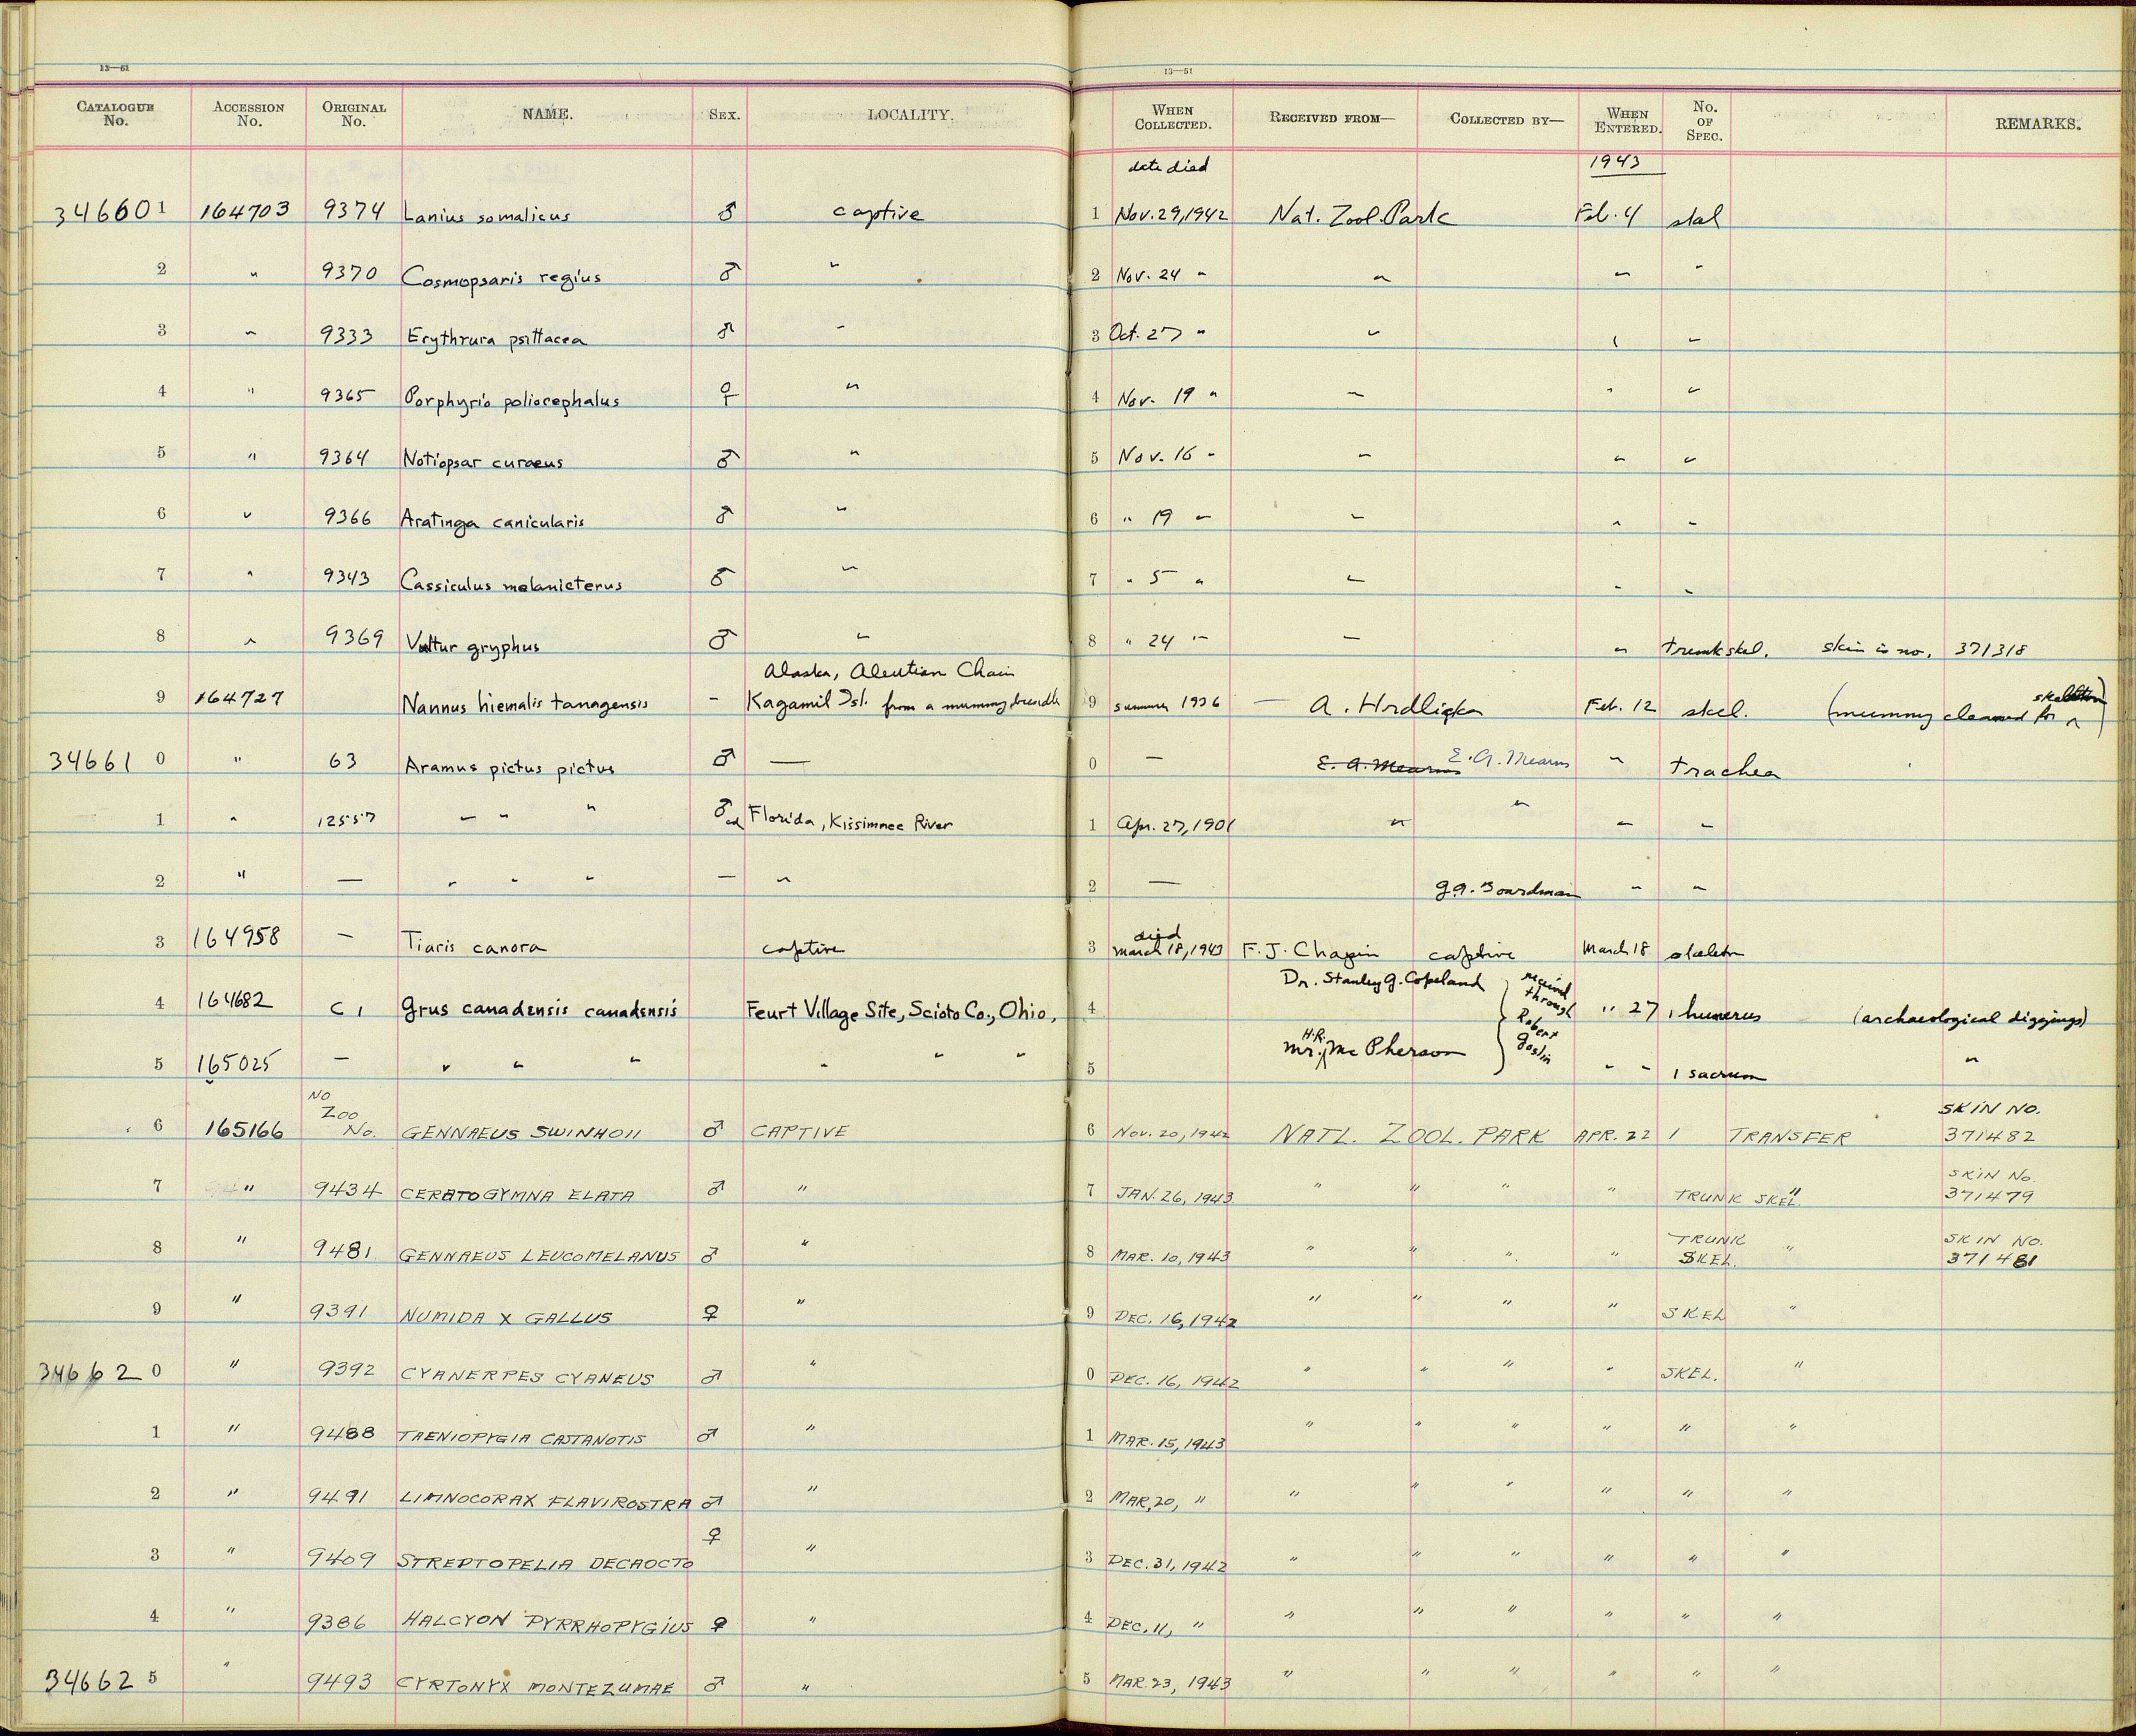 13—51 13—51
CATALOGUE No. ACCESSION No. ORIGINAL No. NAME. SEX. LOCALITY. WHEN COLLECTED. RECEIVED FROM— COLLECTED BY— WHEN ENTERED. No. OF SPEC. REMARKS.
date died 1943
346601 164703 9374 Lanius somalicus ♂ captive 1 Nov. 29, 1942 Nat. Zool. Park Feb. 4 skel
2 " 9370 Cosmopsaris regius ♂ " 2 Nov. 24 " " " "
3 " 9333 Erythrura psittacea ♂ " 3 Oct. 27 " " " "
4 " 9365 Porphyrio poliocephalus ♀ " 4 Nov. 19 " " " "
5 " 9364 Notiopsar curaeus ♂ " 5 Nov. 16 " " " "
6 " 9366 Aratinga canicularis ♂ " 6 " 19 " " " "
7 " 9343 Cassiculus melanicterus ♂ " 7 " 5 " " " "
8 " 9369 Vultur gryphus ♂ " 8 " 24 " " " trunk skel. skin is no. 371318
Alaska, Aleutian Chain
9 164727 Nannus hiemalis tanagensis — Kagamil Isl. from a mummy bundle 9 summer 1936 — A. Hrdlicka Feb. 12 skel. (mummy cleaned for a skeleton)
346610 " 63 Aramus pictus pictus ♂ — 0 — E. A. Mearns E. A. Mearns " trachea
1 " 12557 " " " ♂ ad Florida, Kissimmee River 1 Apr. 27, 1901 " " " "
2 " — " " " — " 2 — G. A. Boardman " "
3 164958 — Tiaris canora captive 3 died March 18, 1943 F. J. Chapin captive March 18 skeleton
4 164682 C 1 Grus canadensis canadensis Feurt Village Site, Scioto Co., Ohio, 4 Dr. Stanley G. Copeland received through Robert Goslin " 27 1 humerus (archaeological diggings)
5 165025 — " " " " " " 5 Mr. H.R. McPherson " " 1 sacrum "
6 165166 NO ZOO No. GENNAEUS SWINHOII ♂ CAPTIVE 6 NOV. 20, 1942 NATL. ZOOL. PARK APR. 22 1 TRANSFER SKIN NO. 371482
7 " 9434 CERATOGYMNA ELATA ♂ " 7 JAN. 26, 1943 " " " " TRUNK SKEL. " SKIN No. 371479
8 " 9481 GENNAEUS LEUCOMELANUS ♂ " 8 MAR. 10, 1943 " " " " TRUNK SKEL. " SKIN NO. 371481
9 " 9391 NUMIDA X GALLUS ♀ " 9 DEC. 16, 1942 " " " " SKEL "
346620 " 9392 CYANERPES CYANEUS ♂ " 0 DEC. 16, 1942 " " " " SKEL. "
1 " 9488 TAENIOPYGIA CASTANOTIS ♂ " 1 MAR. 15, 1943 " " " " " "
2 " 9491 LIMNOCORAX FLAVIROSTRA ♂ " 2 MAR. 20, " " " " " " "
3 " 9409 STREPTOPELIA DECAOCTO ♀ " 3 DEC. 31, 1942 " " " " " "
4 " 9386 HALCYON PYRRHOPYGIUS ♀ " 4 DEC. 11, " " " " " " "
346625 " 9493 CYRTONYX MONTEZUMAE ♂ " 5 MAR. 23, 1943 " " " " " "